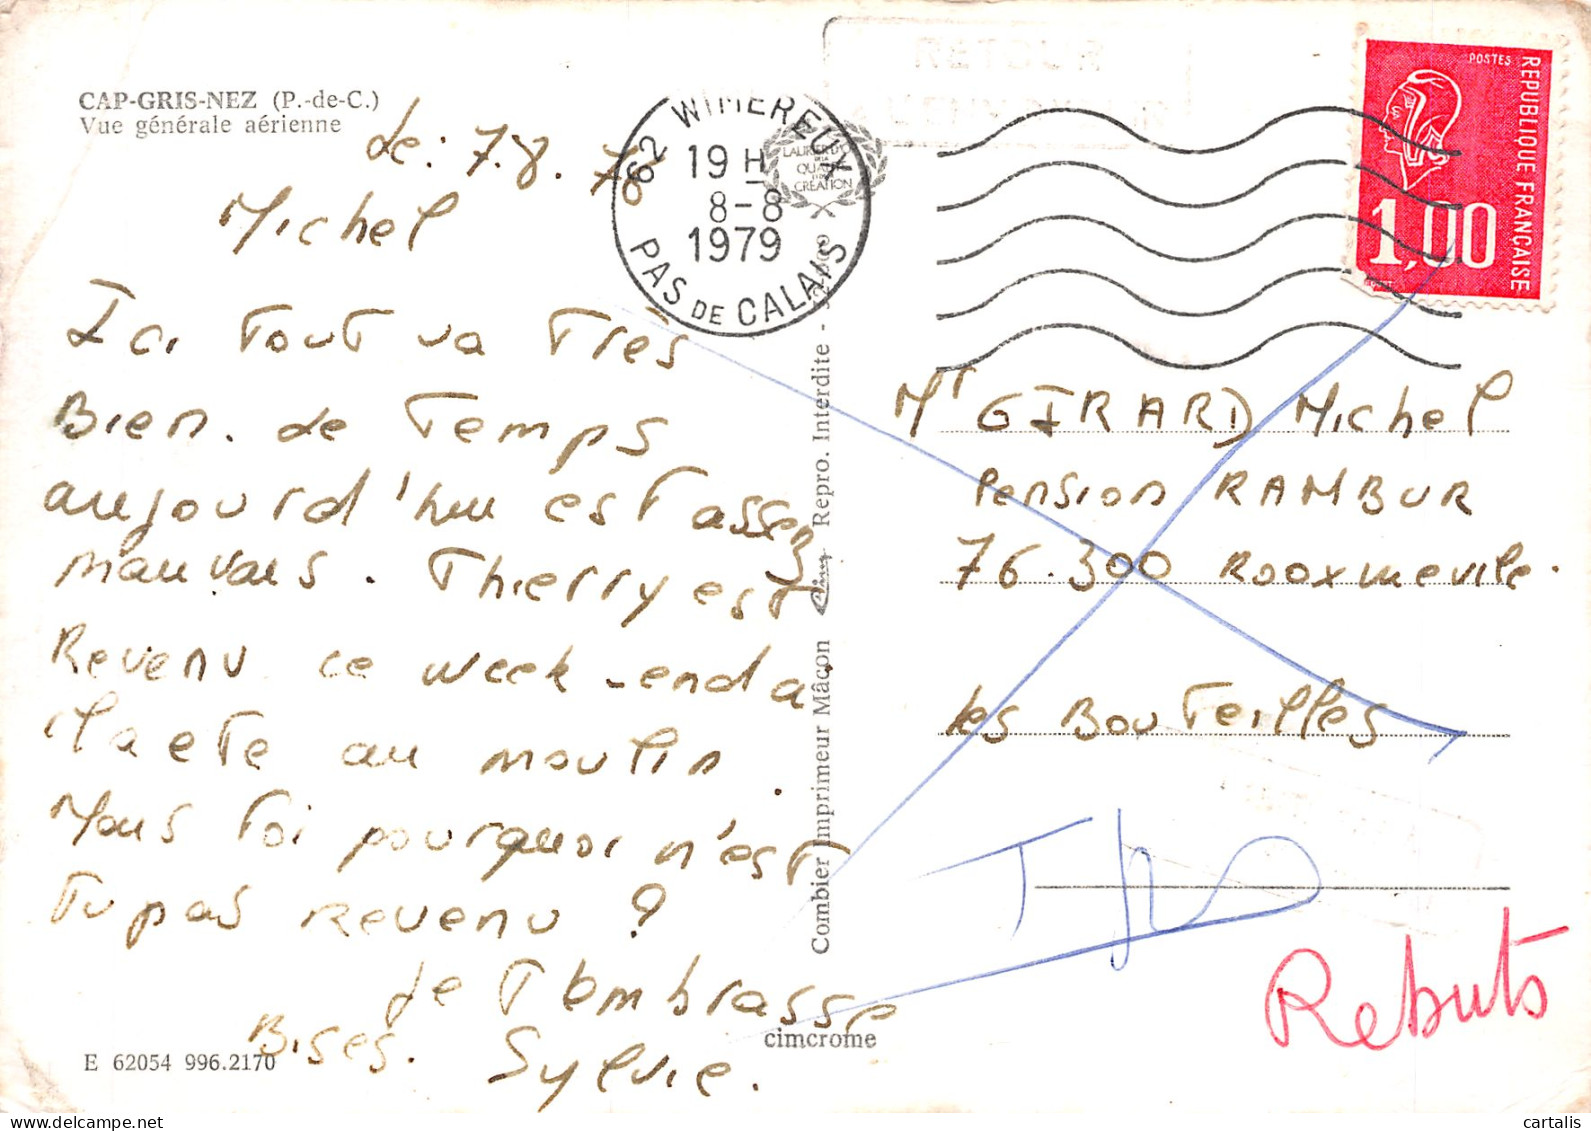 CAP-GRIS-NEZ (P.-de-C.)
Vue générale aérienne
Le: 7.8.
Michel
Ici tout va très
Bien. Le Temps
aujourd'hui est assez
mauvais. Thierry est
Revenu ce week-end a
au moulin.
Mais toi pourquoi n'est
tu pas revenu ?
Je t'embrasse
Bises. Sylvie.
E 62054 996.2170
Combier Imprimeur Mâcon
Repro. Interdite -
cimcrome
62 WIMEREUX
19 H
8-8
1979
PAS DE CALAIS
LAURIER D'OR
DE LA
QUALITÉ
CRÉATION
POSTES
REPUBLIQUE FRANÇAISE
1,00
Mr GIRARD Michel
Pension RAMBUR
76.300
les Bouteilles
Rebuts
www.delcampe.net
cartalis